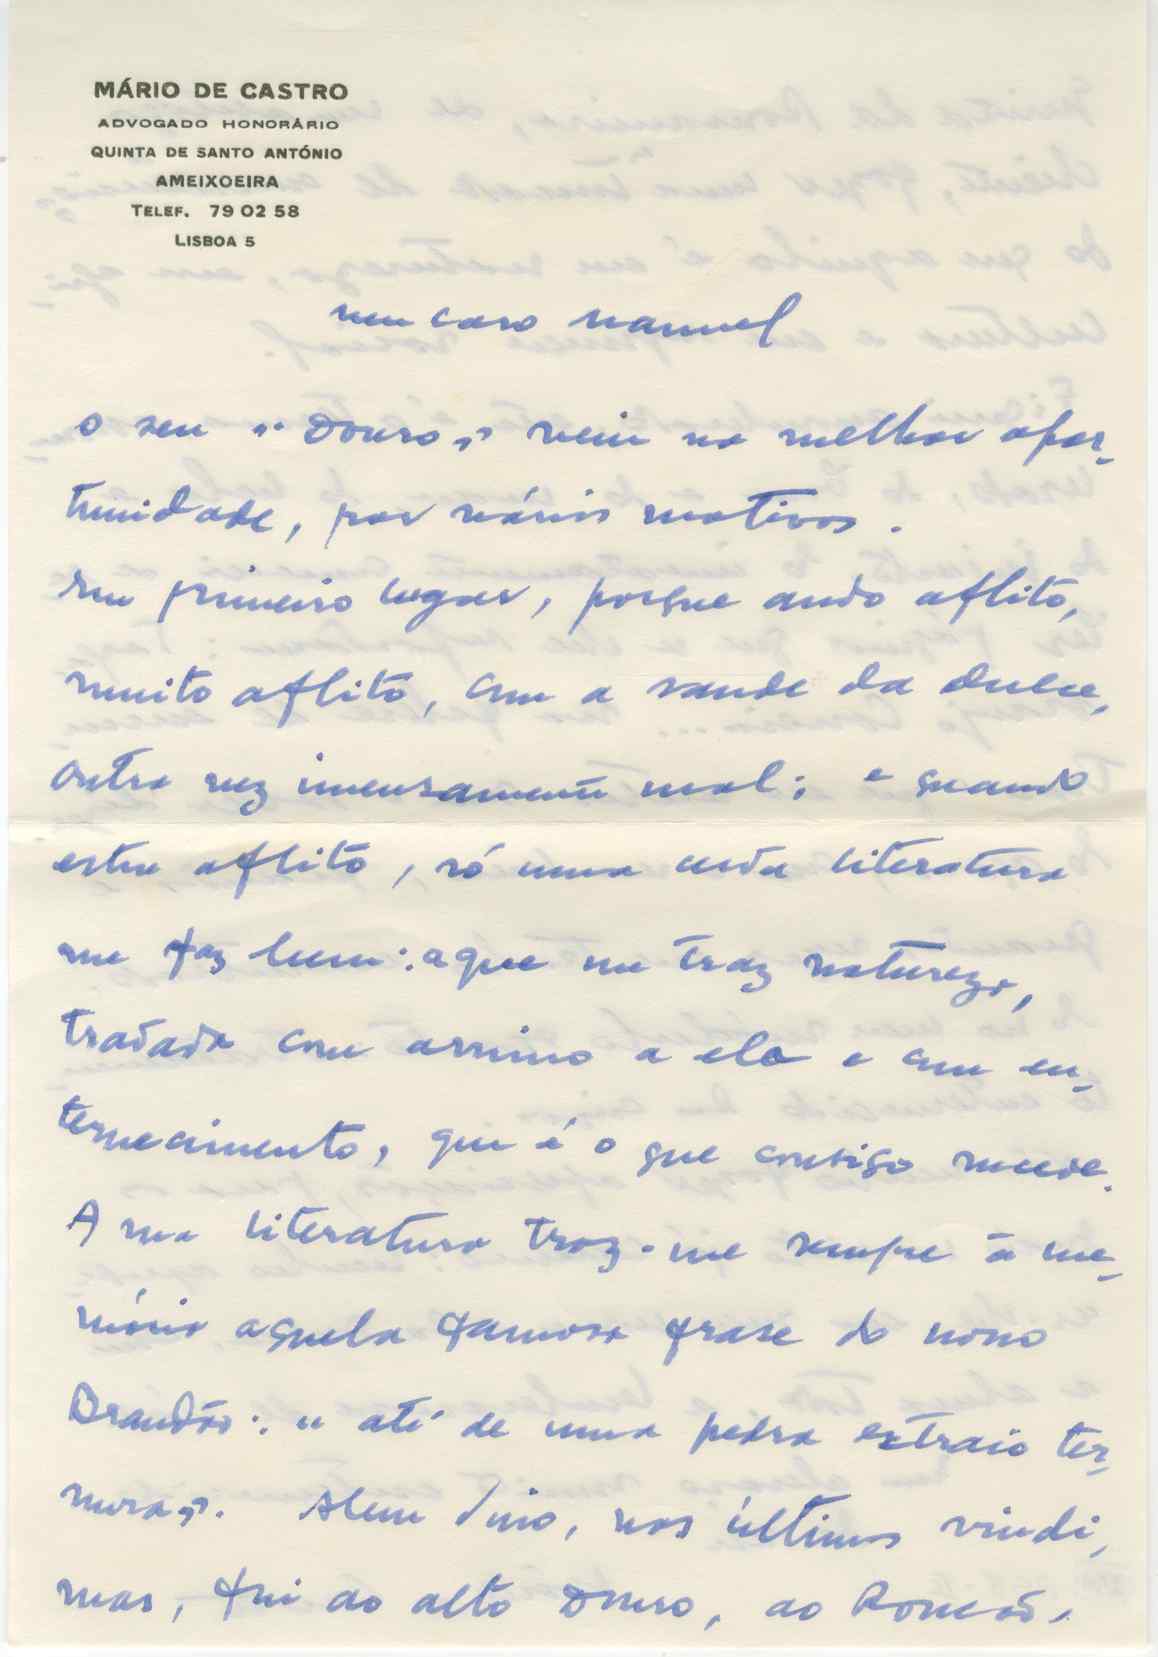 MÁRIO DE CASTRO
ADVOGADO HONORÁRIO
QUINTA DE SANTO ANTÓNIO
AMEIXOEIRA
TELEF. 79 02 58
LISBOA 5
meu caro Manuel
O seu "Douro" veiu na melhor opor-
tunidade, por vários motivos.
Em primeiro lugar, porque ando aflito,
muito aflito, com a saude da Dulce,
outra vez imensamente mal; e quando
estou aflito, só uma certa literatura
me faz bem: a que me traz natureza,
tratada com arrimo a ela e com en-
ternecimento, que é o que consigo sucede.
A sua literatura traz-me sempre à me-
mória aquela famosa frase do nosso
Brandão: "até de uma pedra extraio ter-
nura". Alem disso, nas últimas vindi-
mas, fui ao alto Douro, ao Roncão,